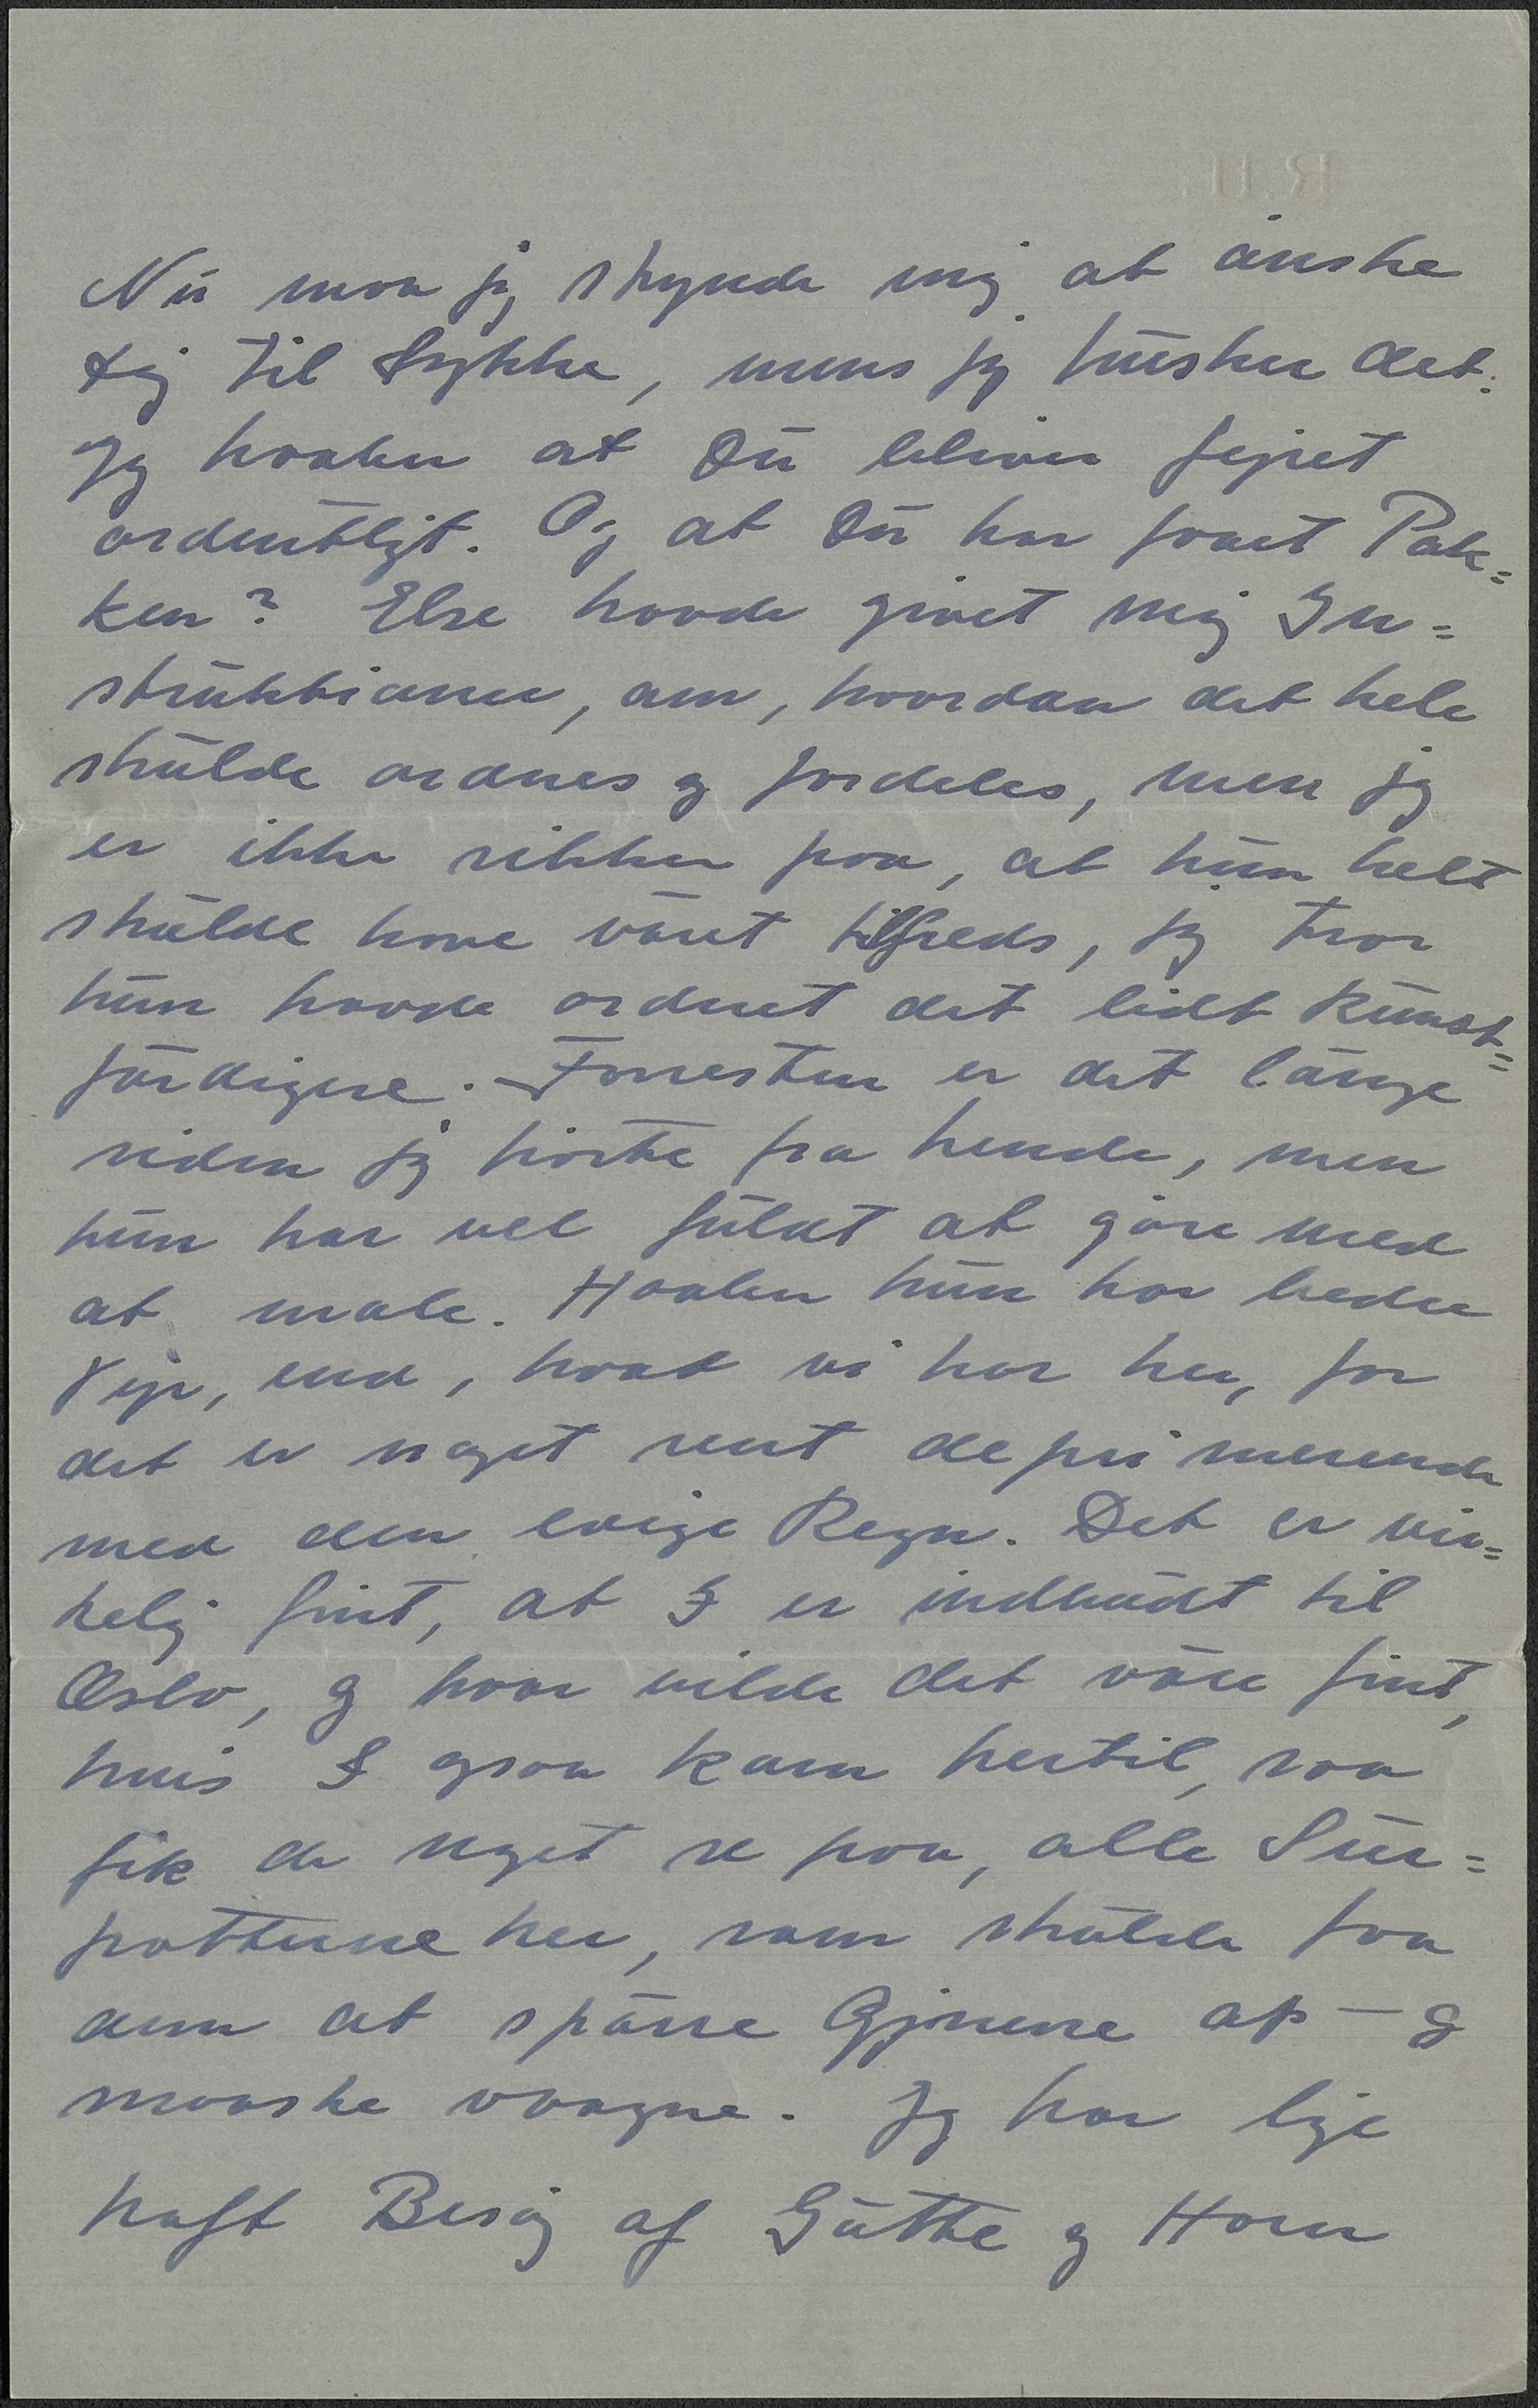 Nu maa jeg skynde mig at ønske
dig til Lykke, mens jeg husker det.
Jeg haaber at Du bliver fejret
ordentligt. Og at Du har faaet Pak=
ken? Else havde givet mig In=
struktioner, om, hvordan det hele
skulde ordnes og fordeles, men jeg
er ikke sikker paa, at hun helt
skulde have været tilfreds, jeg tror
hun havde ordnet det lidt kunst=
færdigere. Forresten er det længe
siden jeg hørte fra hende, men
hun har vel fuldt at gøre med
at male. Haaber hun har bedre
Vejr, end, hvad vi har her, for
det er noget rent deprimerende
med den evige Regn. Det er vir=
kelig fint, at I er indbudt til
Oslo, og hvor vilde det være fint,
hvis I ogsaa kom hertil, saa
fik de noget se paa, alle Sur=
potterne her, som skulde faa
dem at spærre Øjnene op – og
maaske vaagne. Jeg har lige
haft Besøg af Gutte og Horn